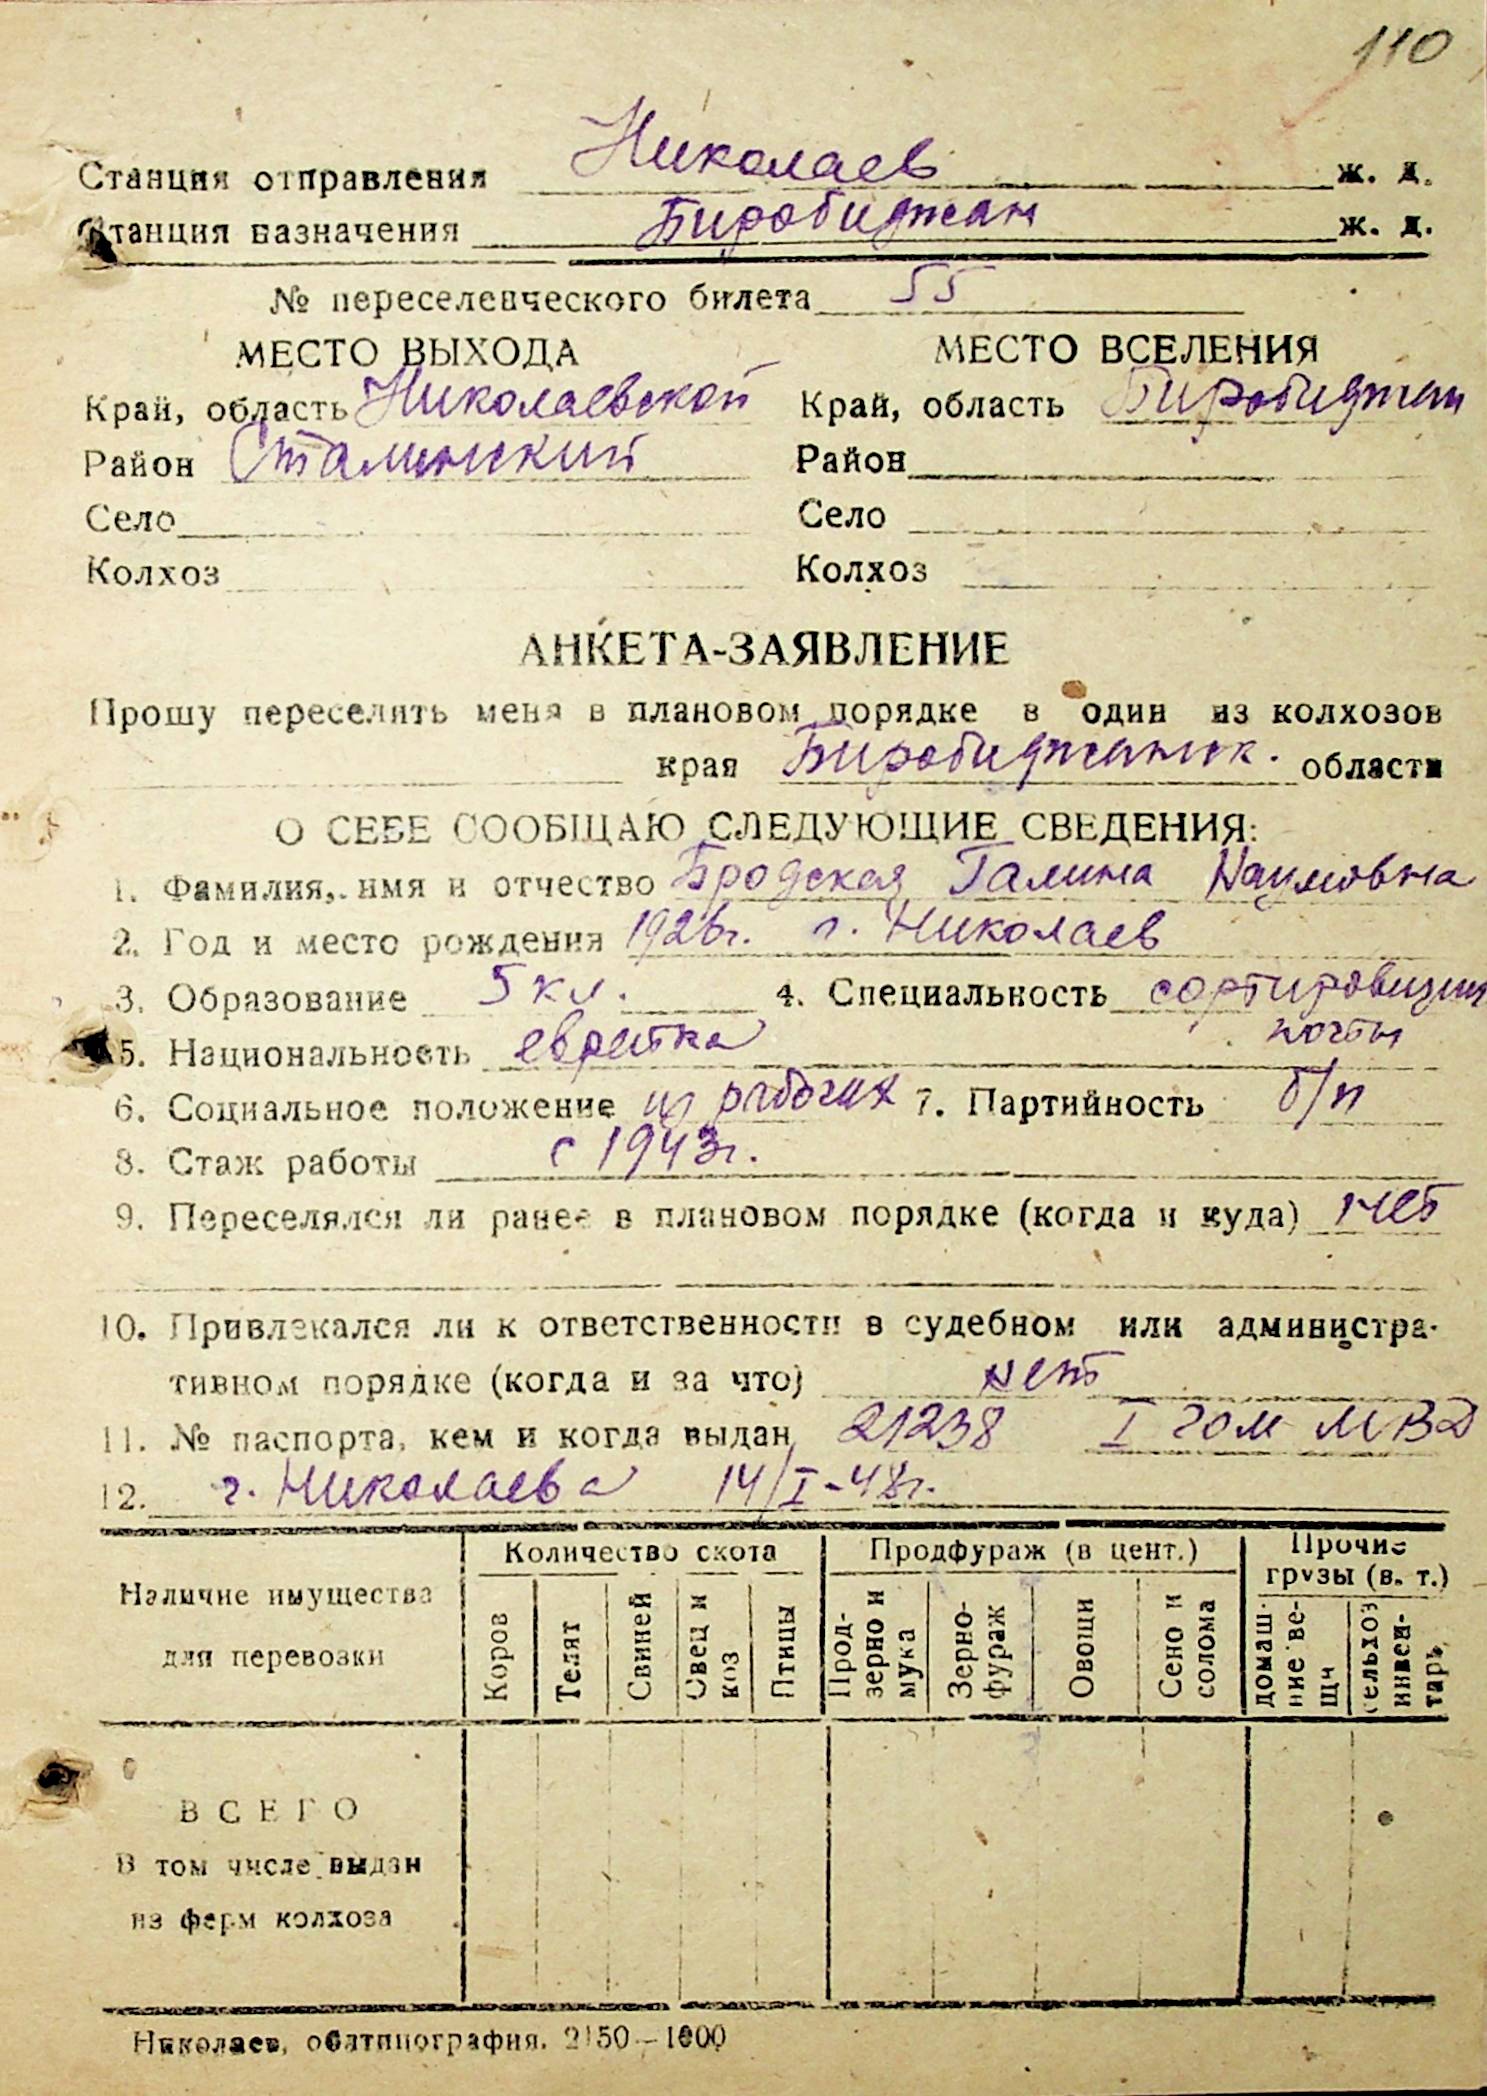 110
Станция отправления Николаев ж. д.
Станция назначения Биробиджан ж. д.
№ переселенческого билета 55
МЕСТО ВЫХОДА МЕСТО ВСЕЛЕНИЯ
Край, область Николаевской Край, область Биробиджан
Район Сталинский Район
Село Село
Колхоз Колхоз
АНКЕТА-ЗАЯВЛЕНИЕ
Прошу переселить меня в плановом порядке в один из колхозов
края Биробиджанск. области
О СЕБЕ СООБЩАЮ СЛЕДУЮЩИЕ СВЕДЕНИЯ:
1. Фамилия, имя и отчество Бродская Галина Наумовна
2. Год и место рождения 1926г. г. Николаев
3. Образование 5 кл. 4. Специальность сортировщик
почты
5. Национальность еврейка
6. Социальное положение из рабочих 7. Партийность б/п
8. Стаж работы с 1943г.
9. Переселялся ли ранее в плановом порядке (когда и куда) нет
10. Привлекался ли к ответственности в судебном или администра-
тивном порядке (когда и за что) нет
11. № паспорта, кем и когда выдан 21238 I гом МВД
12. г. Николаева 14/I-48г.
Наличие имущества для перевозки
Количество скота Продфураж (в цент.) Прочие грузы (в. т.)
Коров Телят Свиней Овец и коз Птицы Прод-зерно и мука Зерно-фураж Овощи Сено и солома домаш-ние ве-щи сельхоз инвен-тарь
ВСЕГО
В том числе выдан
из ферм колхоза
Николаев, облтипография. 2150—1000